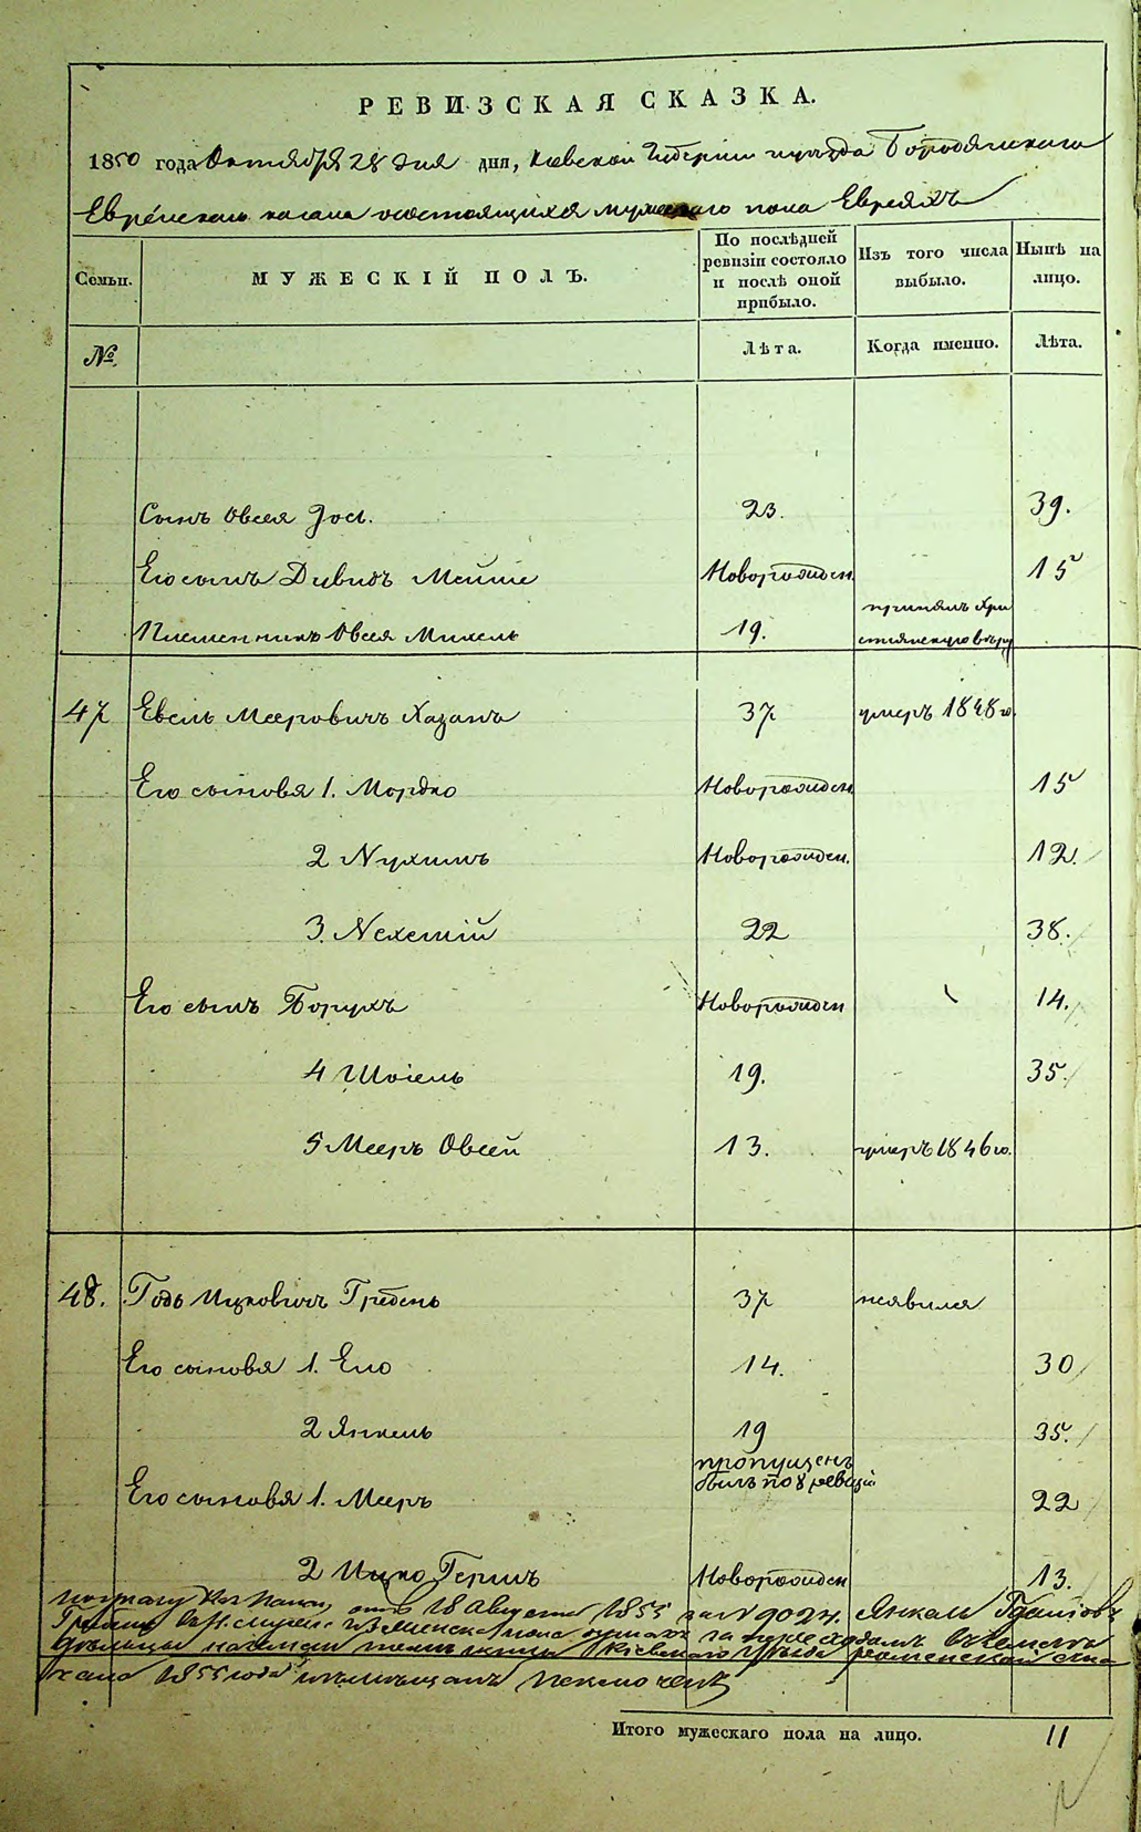 РЕВИЗСКАЯ СКАЗКА.
1850 года Октября 28 дня дня, Киевской Губернии уезда Бородянского
Еврейскаго кагала о состоящихся мужескаго пола Евреяхъ
Семьи.
МУЖЕСКІЙ ПОЛЪ.
По послѣдней ревизіи состояло и послѣ оной прибыло.
Изъ того числа выбыло.
Нынѣ на лицо.
№
Лѣта.
Когда именно.
Лѣта.
Сынъ Овсея Іось. 23. 39.
Его сынъ Дувидъ Мейше Новорожден. 15
Племенникъ Овсея Михель 19. принялъ Хри
стіянскую вѣру
47 Евель Мееровичъ Хазанъ 37 умеръ 1848 го.
Его сыновя 1. Мордко Новорожден 15
2 Нухимъ Новорожден. 12.
3. Нехемій 22 38.
Его сынъ Борухъ Новорожден 14.
4 Шоіель 19. 35.
5 Мееръ Овсей 13. умеръ 1846 го.
48. Годь Ицковичъ Гребень 37 неявился
Его сыновя 1. Ело 14. 30
2 Янкель 19 35.
пропущенъ
былъ по 8 ревизіи
Его сыновя 1. Мееръ 22
2 Ицко Гершъ Новорожден 13.
По указу Каз Палат. отъ 18 Августа 1855 за № Янкель
Кіевскаго Уѣзда
1855 года
Итого мужескаго пола на лицо. 11